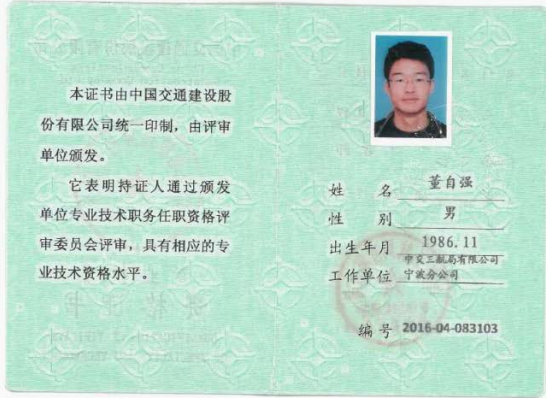 本证书由中国交通建设股
份有限公司统一印制，由评审
单位颁发。
它表明持证人通过颁发
单位专业技术职务任职资格评
审委员会评审，具有相应的专
业技术资格水平。
姓 名 董自强
性 别 男
出生年月 1986.11
工作单位 中交三航局有限公司
宁波分公司
编号 2016-04-083103